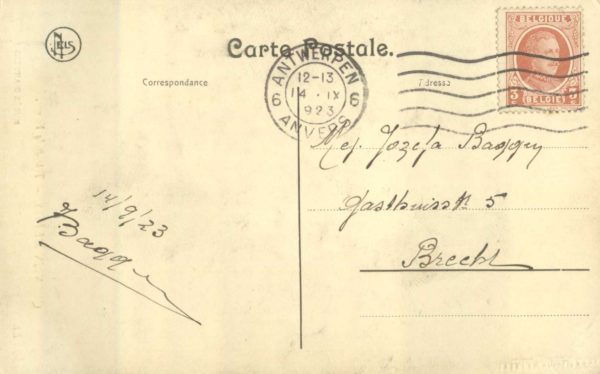 NELS
Carte Postale.
Correspondance
Adresse
ANTWERPEN
12-13
14 · IX
1923
6 6
ANVERS
BELGIQUE
3 3
BELGIË
Mej. Jozefa Baggen
Gasthuisstr 5
Brecht
14/9/23
Baggen